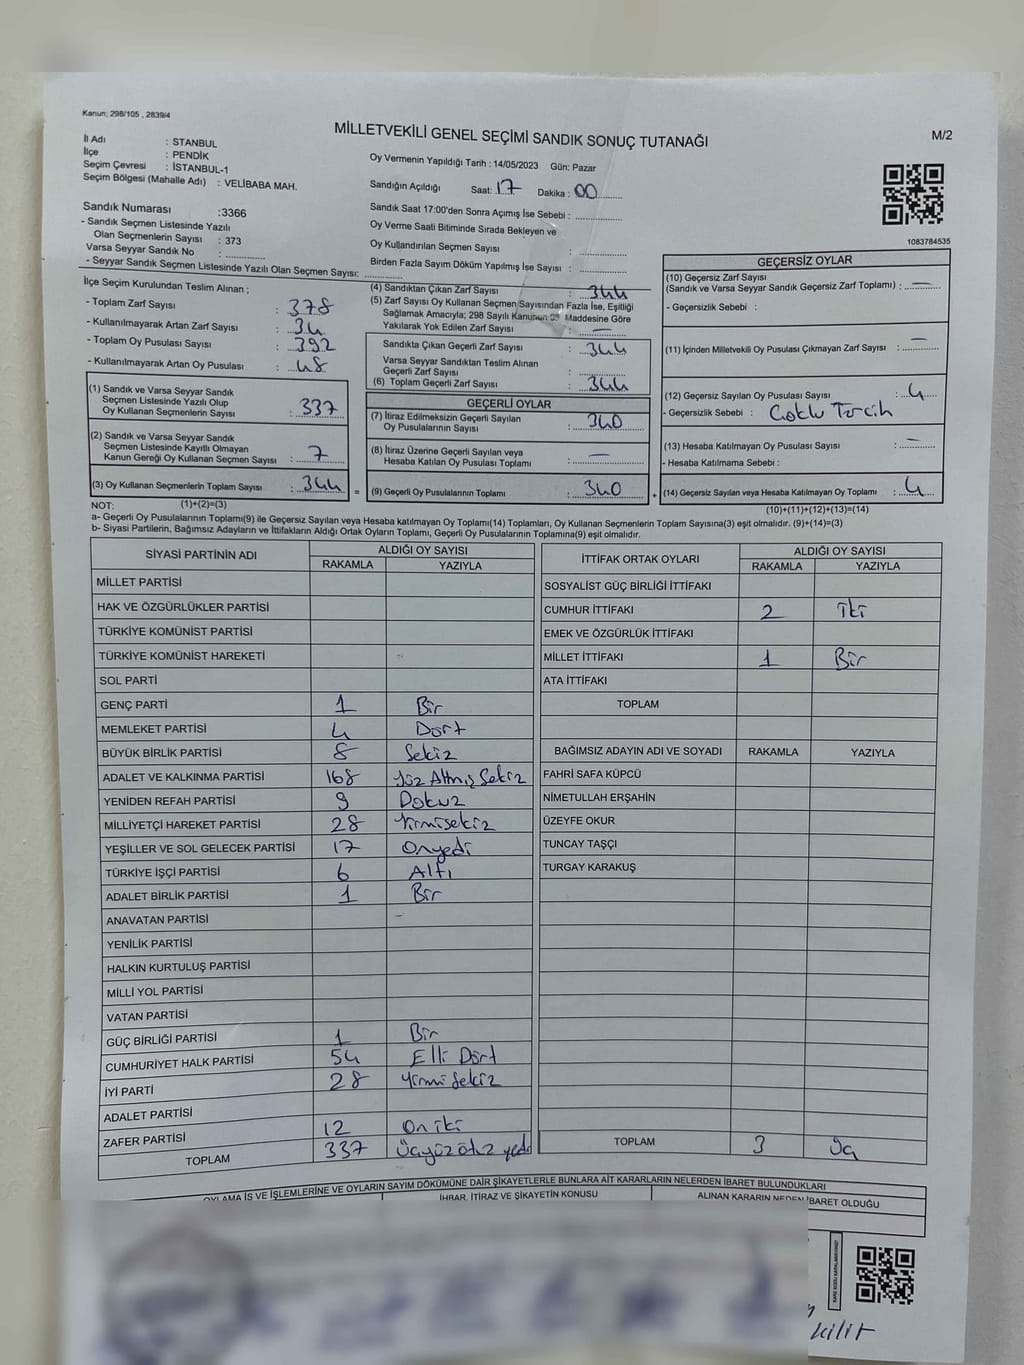 Kanun; 298/105 , 2839/4
MİLLETVEKİLİ GENEL SEÇİMİ SANDIK SONUÇ TUTANAĞI
M/2
İl Adı : STANBUL
İlçe : PENDİK
Seçim Çevresi : İSTANBUL-1
Seçim Bölgesi (Mahalle Adı) : VELİBABA MAH.
Sandık Numarası :3366
- Sandık Seçmen Listesinde Yazılı
Olan Seçmenlerin Sayısı : 373
Varsa Seyyar Sandık No :
- Seyyar Sandık Seçmen Listesinde Yazılı Olan Seçmen Sayısı:
Oy Vermenin Yapıldığı Tarih : 14/05/2023 Gün: Pazar
Sandığın Açıldığı Saat: 17 Dakika : 00
Sandık Saat 17:00'den Sonra Açımış İse Sebebi :
Oy Verme Saati Bitiminde Sırada Bekleyen ve
Oy Kullandırılan Seçmen Sayısı :
Birden Fazla Sayım Döküm Yapılmış İse Sayısı :
1083784535
İlçe Seçim Kurulundan Teslim Alınan ;
- Toplam Zarf Sayısı : 378
- Kullanılmayarak Artan Zarf Sayısı : 34
- Toplam Oy Pusulası Sayısı : 392
- Kullanılmayarak Artan Oy Pusulası : 48
(1) Sandık ve Varsa Seyyar Sandık
Seçmen Listesinde Yazılı Olup
Oy Kullanan Seçmenlerin Sayısı : 337
(2) Sandık ve Varsa Seyyar Sandık
Seçmen Listesinde Kayıtlı Olmayan
Kanun Gereği Oy Kullanan Seçmen Sayısı : 7
(3) Oy Kullanan Seçmenlerin Toplam Sayısı : 344
(1)+(2)=(3)
(4) Sandıktan Çıkan Zarf Sayısı : 344
(5) Zarf Sayısı Oy Kullanan Seçmen Sayısından Fazla İse, Eşitliği
Sağlamak Amacıyla; 298 Sayılı Kanunun Maddesine Göre
Yakılarak Yok Edilen Zarf Sayısı : —
Sandıkta Çıkan Geçerli Zarf Sayısı : 344
Varsa Seyyar Sandıktan Teslim Alınan
Geçerli Zarf Sayısı :
(6) Toplam Geçerli Zarf Sayısı : 344
GEÇERLİ OYLAR
(7) İtiraz Edilmeksizin Geçerli Sayılan
Oy Pusulalarının Sayısı : 340
(8) İtiraz Üzerine Geçerli Sayılan veya
Hesaba Katılan Oy Pusulası Toplamı : —
= (9) Geçerli Oy Pusulalarının Toplamı : 340 +
GEÇERSİZ OYLAR
(10) Geçersiz Zarf Sayısı
(Sandık ve Varsa Seyyar Sandık Geçersiz Zarf Toplamı) : —
- Geçersizlik Sebebi :
(11) İçinden Milletvekili Oy Pusulası Çıkmayan Zarf Sayısı : —
(12) Geçersiz Sayılan Oy Pusulası Sayısı : 4
- Geçersizlik Sebebi : Çoklu Tercih
(13) Hesaba Katılmayan Oy Pusulası Sayısı : —
- Hesaba Katılmama Sebebi :
(14) Geçersiz Sayılan veya Hesaba Katılmayan Oy Toplamı : 4
(10)+(11)+(12)+(13)=(14)
NOT:
a- Geçerli Oy Pusulalarının Toplamı(9) ile Geçersiz Sayılan veya Hesaba katılmayan Oy Toplamı(14) Toplamları, Oy Kullanan Seçmenlerin Toplam Sayısına(3) eşit olmalıdır. (9)+(14)=(3)
b- Siyasi Partilerin, Bağımsız Adayların ve İttifakların Aldığı Ortak Oyların Toplamı, Geçerli Oy Pusulalarının Toplamına(9) eşit olmalıdır.
SİYASİ PARTİNİN ADI ALDIĞI OY SAYISI
RAKAMLA YAZIYLA
MİLLET PARTİSİ
HAK VE ÖZGÜRLÜKLER PARTİSİ
TÜRKİYE KOMÜNİST PARTİSİ
TÜRKİYE KOMÜNİST HAREKETİ
SOL PARTİ
GENÇ PARTİ 1 Bir
MEMLEKET PARTİSİ 4 Dört
BÜYÜK BİRLİK PARTİSİ 8 Sekiz
ADALET VE KALKINMA PARTİSİ 168 Yüz Altmış Sekiz
YENİDEN REFAH PARTİSİ 9 Dokuz
MİLLİYETÇİ HAREKET PARTİSİ 28 Yirmisekiz
YEŞİLLER VE SOL GELECEK PARTİSİ 17 Onyedi
TÜRKİYE İŞÇİ PARTİSİ 6 Altı
ADALET BİRLİK PARTİSİ 1 Bir
ANAVATAN PARTİSİ –
YENİLİK PARTİSİ
HALKIN KURTULUŞ PARTİSİ
MİLLİ YOL PARTİSİ
VATAN PARTİSİ
GÜÇ BİRLİĞİ PARTİSİ 1 Bir
CUMHURİYET HALK PARTİSİ 54 Elli Dört
İYİ PARTİ 28 Yirmi Sekiz
ADALET PARTİSİ
ZAFER PARTİSİ 12 On iki
TOPLAM 337 Üçyüz otuz yedi
İTTİFAK ORTAK OYLARI ALDIĞI OY SAYISI
RAKAMLA YAZIYLA
SOSYALİST GÜÇ BİRLİĞİ İTTİFAKI
CUMHUR İTTİFAKI 2 İki
EMEK VE ÖZGÜRLÜK İTTİFAKI
MİLLET İTTİFAKI 1 Bir
ATA İTTİFAKI
TOPLAM
BAĞIMSIZ ADAYIN ADI VE SOYADI RAKAMLA YAZIYLA
FAHRİ SAFA KÜPCÜ
NİMETULLAH ERŞAHİN
ÜZEYFE OKUR
TUNCAY TAŞÇI
TURGAY KARAKUŞ
TOPLAM 3 Üç
OYLAMA İŞ VE İŞLEMLERİNE VE OYLARIN SAYIM DÖKÜMÜNE DAİR ŞİKAYETLERLE BUNLARA AİT KARARLARIN NELERDEN İBARET BULUNDUKLARI
İHBAR, İTİRAZ VE ŞİKAYETİN KONUSU
ALINAN KARARIN NEDEN İBARET OLDUĞU
kilit